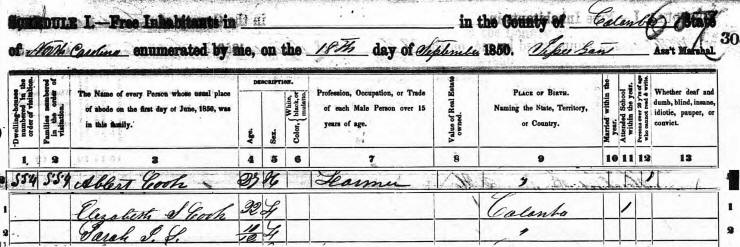 SCHEDULE I.—Free Inhabitants in in the County of State
of North Carolina enumerated by me, on the 18th day of September 1850. Ass't Marshal. 30
Dwelling-houses numbered in the order of visitation.
Families numbered in the order of visitation.
The Name of every Person whose usual place of abode on the first day of June, 1850, was in this family.
DESCRIPTION.
Age.
Sex.
Color, White, black, or mulatto.
Profession, Occupation, or Trade of each Male Person over 15 years of age.
Value of Real Estate owned.
PLACE OF BIRTH.
Naming the State, Territory, or Country.
Married within the year.
Attended School within the year.
Persons over 20 y'rs of age who cannot read & write.
Whether deaf and dumb, blind, insane, idiotic, pauper, or convict.
1 2 3 4 5 6 7 8 9 10 11 12 13
554 554 Albert Cook 37 M Farmer " 1
1 Elizabeth S Cook 22 F 1
2 Sarah F "